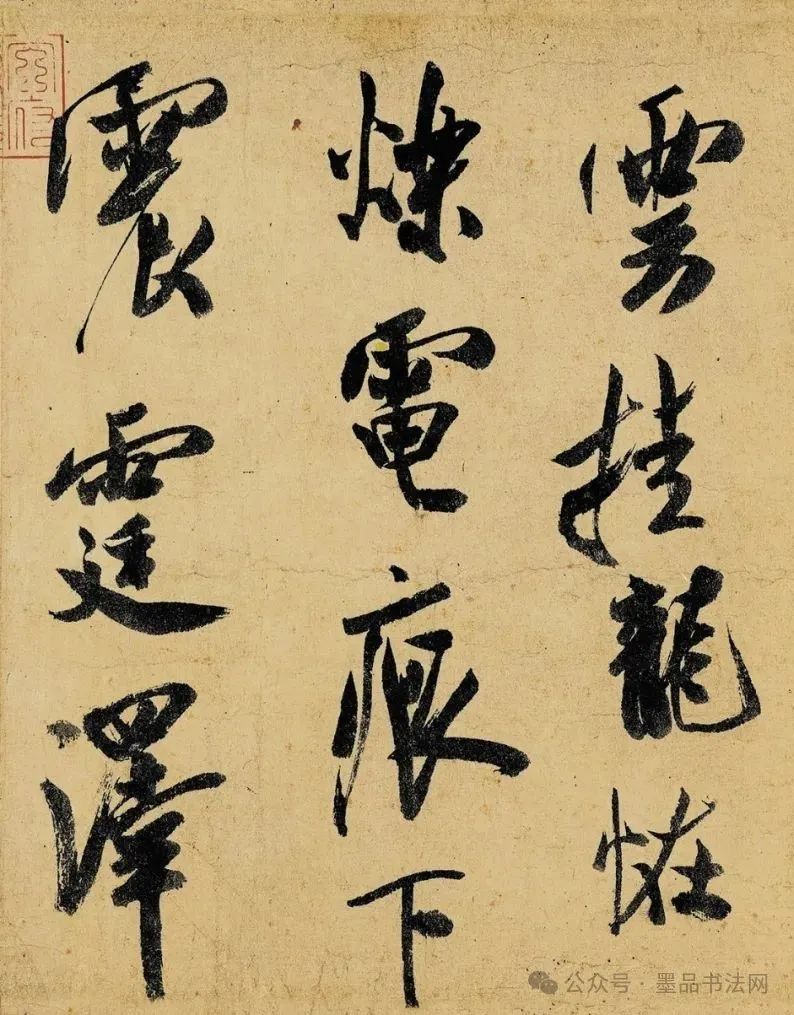 雲挂龍恠
爍電痕下
震霆澤
公众号·墨品书法网